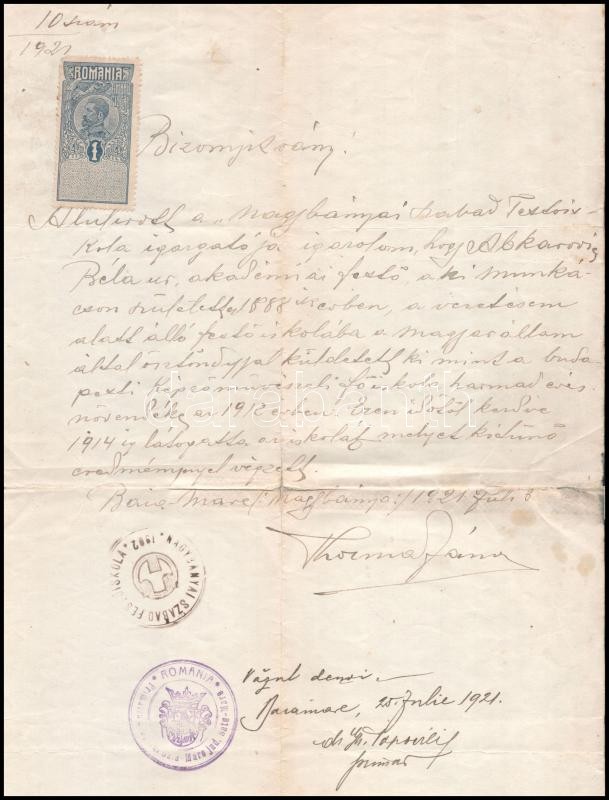 10 szám
1921
ROMANIA
1
Bizonyitvány!
Alulirott a „Nagybányai szabad Festőis-
kola igazgatója igazolom, hogy Abkarovics
Béla ur, akadémiai festő, a ki Munká-
cson született 1888 ik évben, a vezetésem
alatt álló festőiskolába a magyar állam
által ösztöndijjal küldetett ki mint a buda
pesti Képzőművészeti főiskola harmad éves
növendéke az 1912 évben. Ezen időtől kezdve
1914 ig látogatta az iskolát melyet kitünő
eredménnyel végzett.
Baia-Mare /:Nagybánya:/ 1921 Juli 5
Thorma János
NAGYBÁNYAI SZABAD FESTŐISKOLA * 1902 *
Văzut de noi
Baiamare, 25 Iulie 1921.
ROMANIA
primar
darabanth